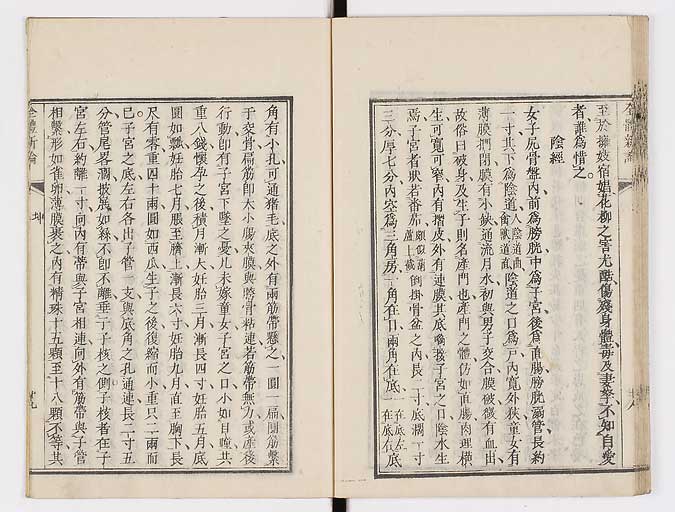 至於擁妓宿娼花柳之害尤酷傷殘身體毒及妻孥不知自愛
者誰爲惜之
陰經
女子尻骨盤內前爲膀胱中爲子宮後爲直腸膀胱溺管長約
一寸其下爲陰道人陰道曲禽獸道直陰道之口爲戶內寬外狹童女有
薄膜捫閉膜有小缺通流月水初與男子交合膜破微有血出
故俗曰破身及生子則名產門也產門之體仿如直腸肉理橫
生可寬可窄內有摺皮外有連膜其底喚孩子宮之口陰水生
焉子宮者狀若番茄倒掛骨盆之內長二寸底濶一寸
三分厚七分內空爲三角房一角在口兩角在底一在底左一在底右底
角有小孔可通猪毛向底之外有兩筋帶懸之一圓一扁圓筋繫
于交骨扁筋卽大小腸夾膜與胯骨粘連若筋帶無力或產後
行動卽有子宮下墜之憂凡未嫁童女子宮之口小如目瞳共
重八錢懷孕之後積月漸大姙胎三月漸長四寸姙胎五月底
圓如瓢姙胎七月脹至臍上漸長六寸姙胎九月直至胸下長
尺有零重四十兩圓如西瓜生子之後復縮而小重只二兩而
已子宮之底左右各出子管一支與底角之孔通連長二寸五
分管尾畧濶披展如絲不卽不離垂于子核之側子核者在子
宮左右約離一寸向內有帶與子宮相連向外有筋帶與子管
相繫形如雀卵薄膜裹之內有精珠十五顆至十八顆不等共
全體新論